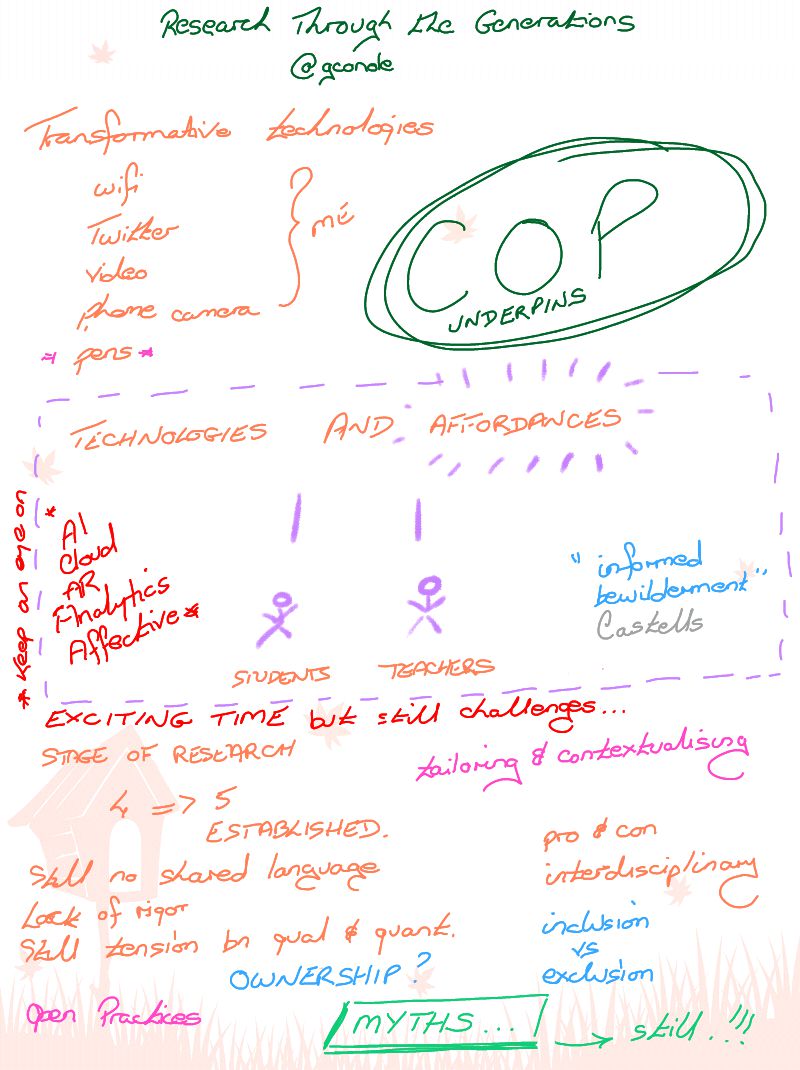 Research Through the Generations
@gconole
Transformative technologies
wifi
Twitter
video
phone camera
} me
* pens *
COP
UNDERPINS
TECHNOLOGIES AND AFFORDANCES
* Keep an eye on
* AI
Cloud
AR
Analytics
Affective *
STUDENTS
TEACHERS
"informed
bewilderment"
Castells
EXCITING TIME but still challenges...
STAGE OF RESEARCH
4 => 5
ESTABLISHED.
tailoring & contextualising
Still no shared language
Lack of rigor
Still tension bn qual & quant.
pro & con
interdisciplinary
inclusion
vs
exclusion
OWNERSHIP?
Open Practices
MYTHS... → still!!!